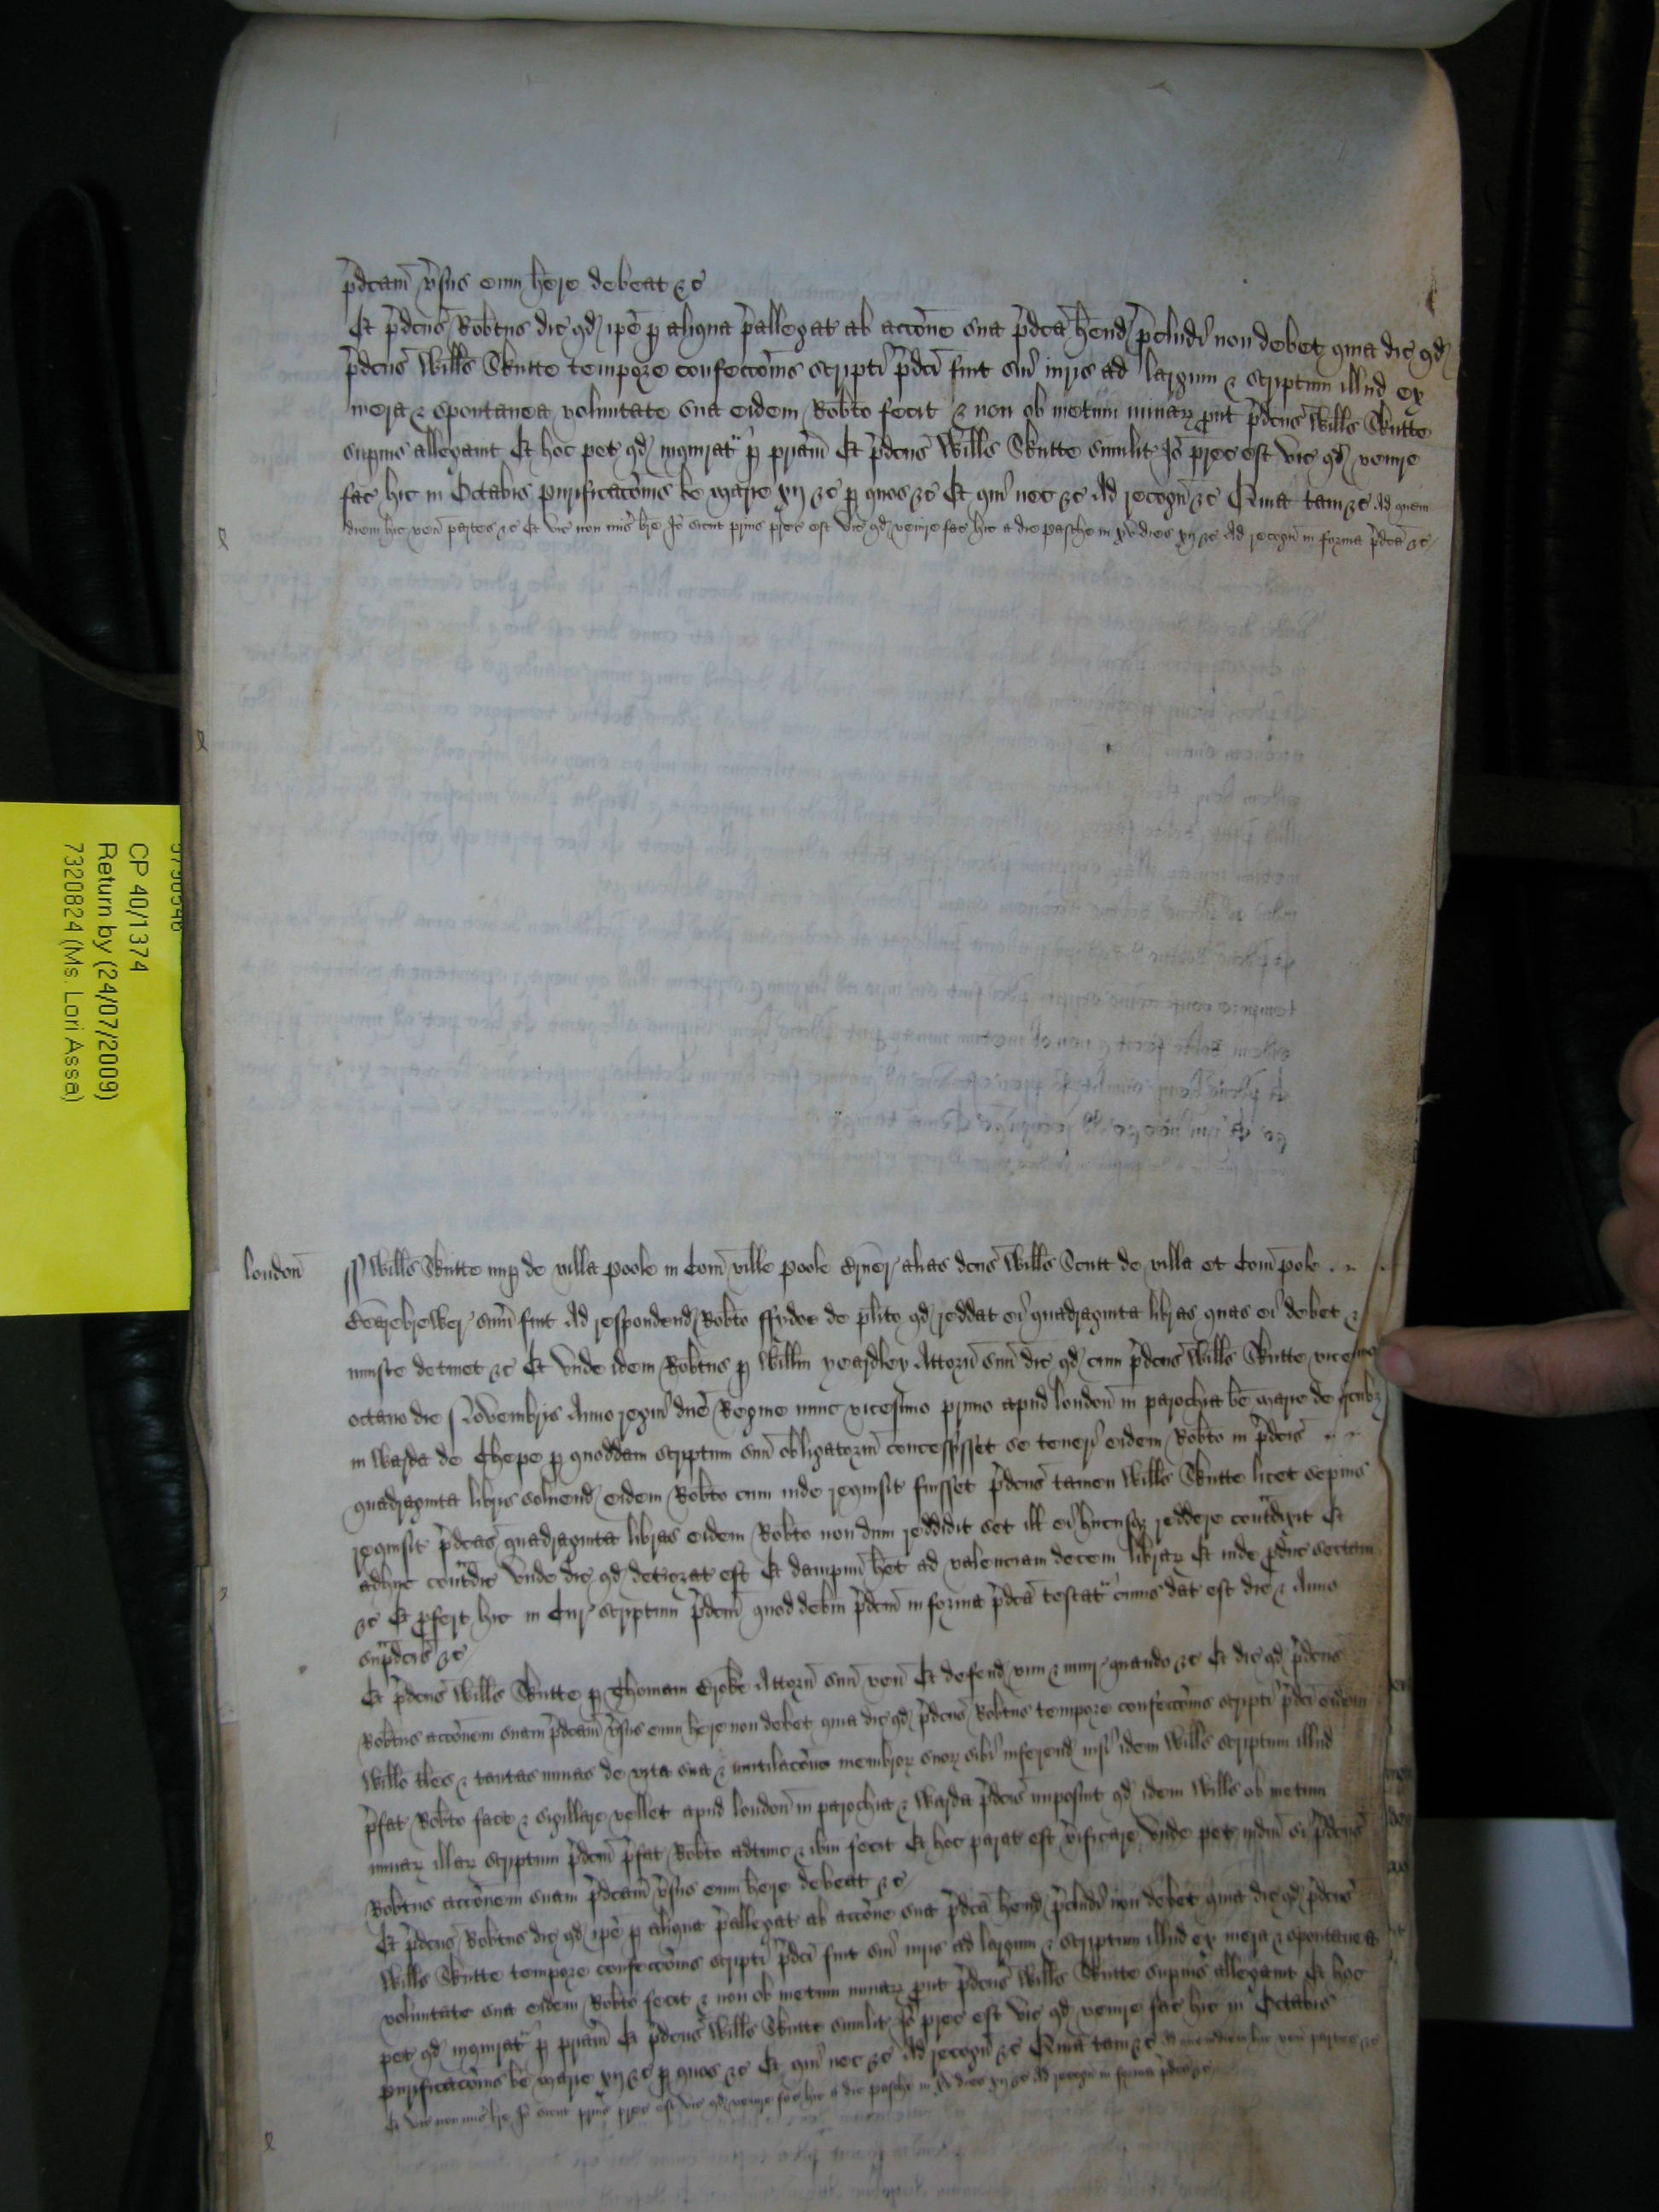 p̄dcam̄ v̄sus eum h̄ere debeat &c
Et p̄dcus Rob̄tus dic̄ qd ip̄e p aliqua p̄allegat ab acc̄one sua p̄dca h̄end p̄cludi non debet quia dic̄ qd
p̄dcus Wills Skutte tempore confecc̄onis scripti p̄dci fuit sui iuris ad largum & scriptum illud ex
mera & spontanea voluntate sua eidem Rob̄to fecit & non ob metum minar̄ put p̄dcus Wills Skutte
superius allegauit Et hoc pet qd inquirat̄ p pr̄iam Et p̄dcus Wills Skutte similit̄ Iō prec̄ est vic̄ qd venire
fac̄ hic in Octabis purificac̄onis b̄e Marie xij &c p quos &c Et qui nec &c Ad recogn̄ &c Quia tam &c Ad quem
diem hic ven̄ partes &c Et vic̄ non mis̄ b̄re Iō sicut prius prec̄ est vic̄ qd venire fac̄ hic a die pasche in xv dies xij &c Ad recogn̄ in forma p̄dca &c
london̄ Wills Skutte nup de villa Poole in Com̄ ville Poole alias dcus Wills Scutt de villa et Com̄ Pole
sum̄ fuit Ad respondend Rob̄to de pl̄ito qd reddat ei quadraginta libras quas ei debet &
iniuste detinet &c Et vnde idem Rob̄tus p Willm̄ yeardley Attorn̄ suu dic̄ qd cum p̄dcus Wills Skutte vicesimo
octauo die Nouembris Anno regni dn̄e Regine nunc vicesimo primo apud london̄ in parochia b̄e Marie de Arcub
in Warda de Chepe p quoddam scriptum suu obligatoriu concessisset se teneri eidem Rob̄to in p̄dcis
quadraginta libris soluend eidem Rob̄to cum inde requisit̄ fuisset p̄dcus tamen Wills Skutte licet sepius
requisit̄ p̄dcas quadraginta libras eidem Rob̄to non dum reddidit set ill̄ ei hucusq reddere contradixit Et
adhuc contradic̄ vnde dic̄ qd deteriorat̄ est Et dampnu h̄et ad valenciam decem librar̄ Et inde pduc̄ sectam
&c Et pfert hic in Cur̄ scriptum p̄dcm̄ quod debitu p̄dcm̄ in forma p̄dca testat̄ cuius dat̄ est die & Anno
sup̄dcis &c
Et p̄dcus Wills Skutte p Thomam Attorn̄ suu ven̄ Et defend vim & iniur̄ quando &c Et dic̄ qd p̄dcus
Rob̄tus acc̄onem suam p̄dcam̄ v̄sus eum h̄ere non debet quia dic̄ qd p̄dcus Rob̄tus tempore confecc̄onis scripti p̄dci eidem
Willo tales & tantas minas de vita sua & mutilac̄one membror̄ suor̄ sibi inferend nisi idem Wills scriptum illud
p̄fat̄ Rob̄to fac̄e & sigillare vellet apud london̄ in parochia & Warda p̄dcis imposuit qd idem Wills ob metum
minar̄ illar̄ scriptum p̄dcm̄ p̄fat̄ Rob̄to adtunc & ib̄m fecit Et hoc parat̄ est v̄ificare Vnde pet iudm̄ si p̄dcus
Rob̄tus acc̄onem suam p̄dcam̄ v̄sus eum h̄ere debeat &c
Et p̄dcus Rob̄tus dic̄ qd ip̄e p aliqua p̄allegat ab acc̄one sua p̄dca h̄end p̄cludi non debet quia dic̄ qd p̄dcus
Wills Skutte tempore confecc̄onis scripti p̄dci fuit sui iuris ad largum & scriptum illud ex mera & spontanea
voluntate sua eidem Rob̄to fecit & non ob metum minar̄ put p̄dcus Wills Skutte superius allegauit Et hoc
pet qd inquirat̄ p pr̄iam Et p̄dcus Wills Skutte similit̄ Iō prec̄ est vic̄ qd venire fac̄ hic in Octabis
purificac̄onis b̄e Marie xij &c p quos &c Et qui nec &c Ad recogn̄ &c Quia tam &c Ad quem diem hic ven̄ partes &c
Et vic̄ non mis̄ b̄re Iō sicut prius prec̄ est vic̄ qd venire fac̄ hic a die pasche in xv dies xij &c Ad recogn̄ in forma p̄dca &c
CP 40/1374
Return by (24/07/2009)
7320824 (Ms. Lori Assa)